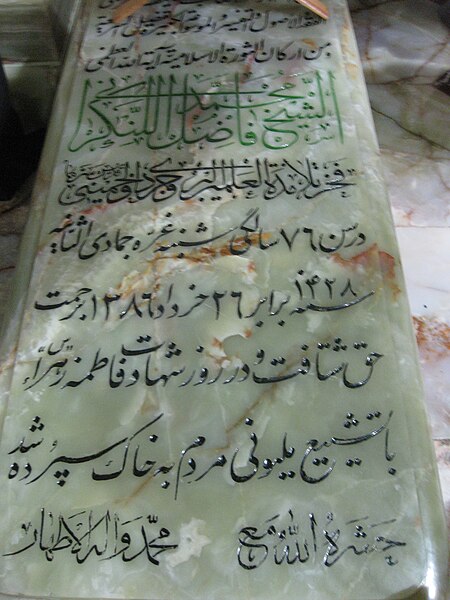 الفقه الاصول التفسیر
من ارکان الثورة الاسلامیة آیة الله العظمی
الشیخ محمد الفاضل اللنکرانی
فخر تلامذة العلمین البروجردی و الخمینی
در سن ۷۶ سالگی شنبه غره جمادی الثانیه
سنه ۱۴۲۸ برابر ۲۶ خرداد ۱۳۸۶ برحمت
حق شتافت و در روز شهادت فاطمه زهراء س
با تشییع میلیونی مردم به خاک سپرده شد
حشره الله مع محمد و اله الاطهار